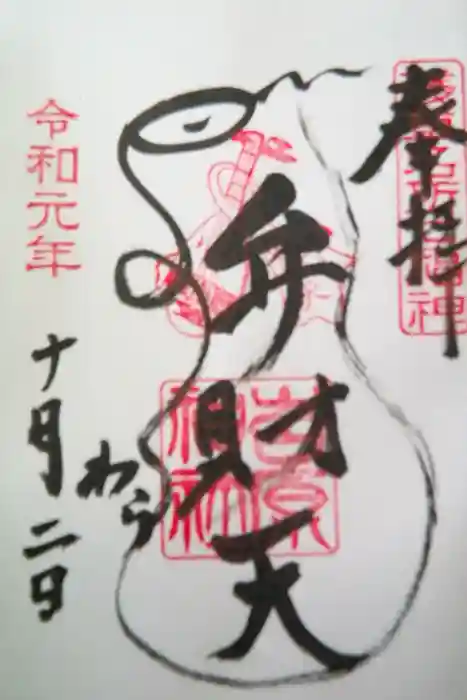 奉拝
弁財天
吉原神社
わら
令和元年
十月二日